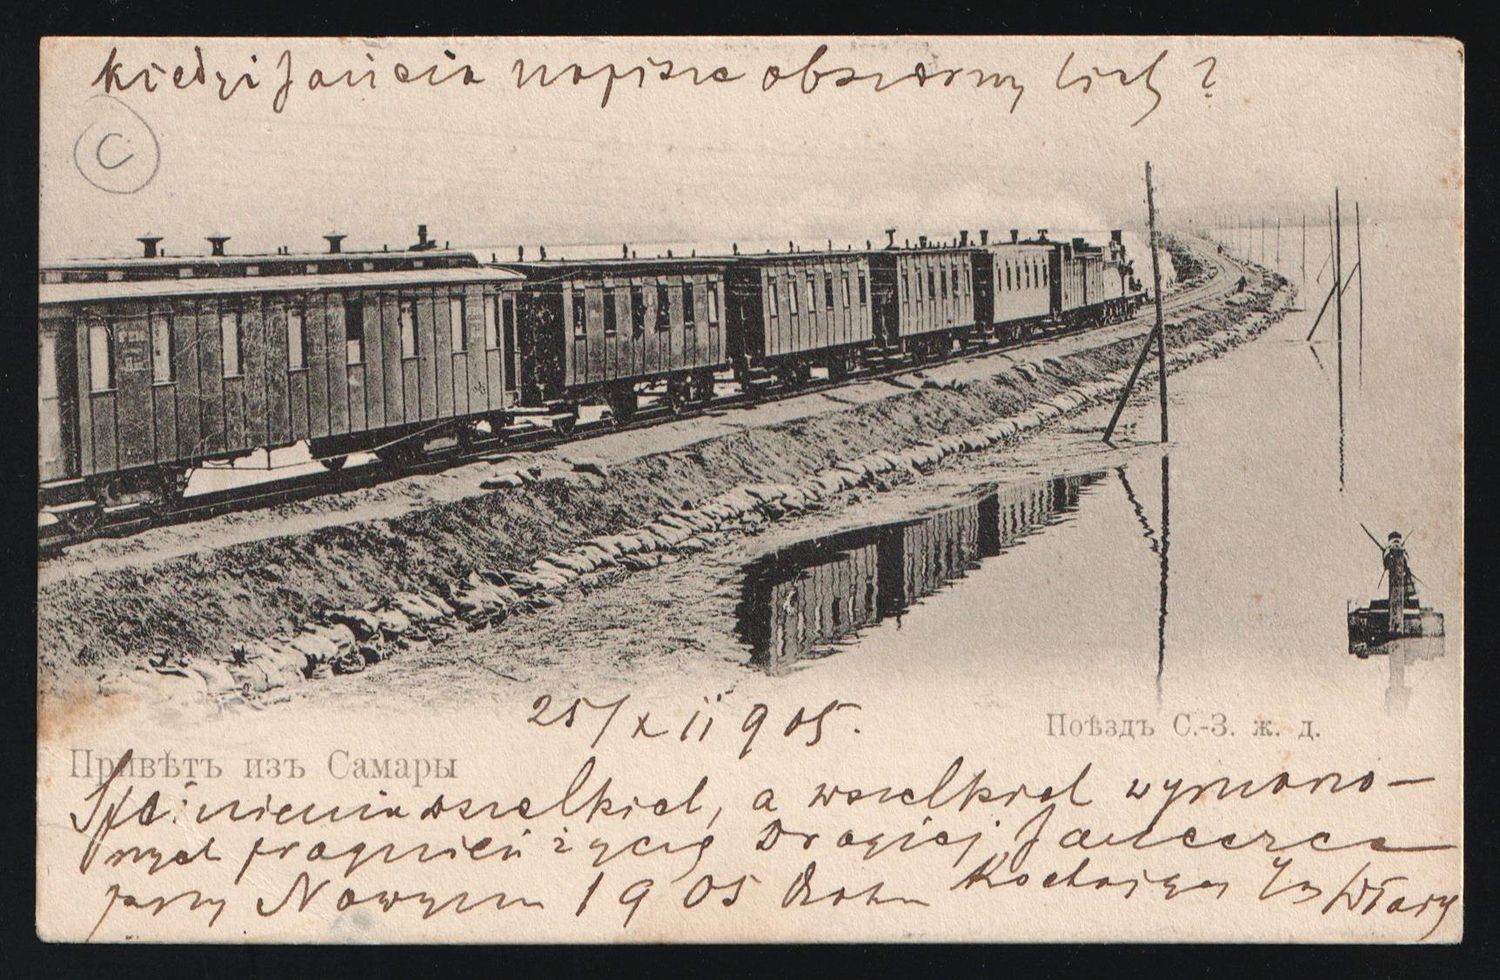 kiedyż Jańcia napisze obszerny list?
C
25/XII 905.
Поѣздъ С.-З. ж. д.
Привѣтъ изъ Самары
Spełnienia wszelkich, a wszelkich wymarzo-
nych pragnień życzę Drogiej Janeczce
przy Nowym 1905 Roku Kochający